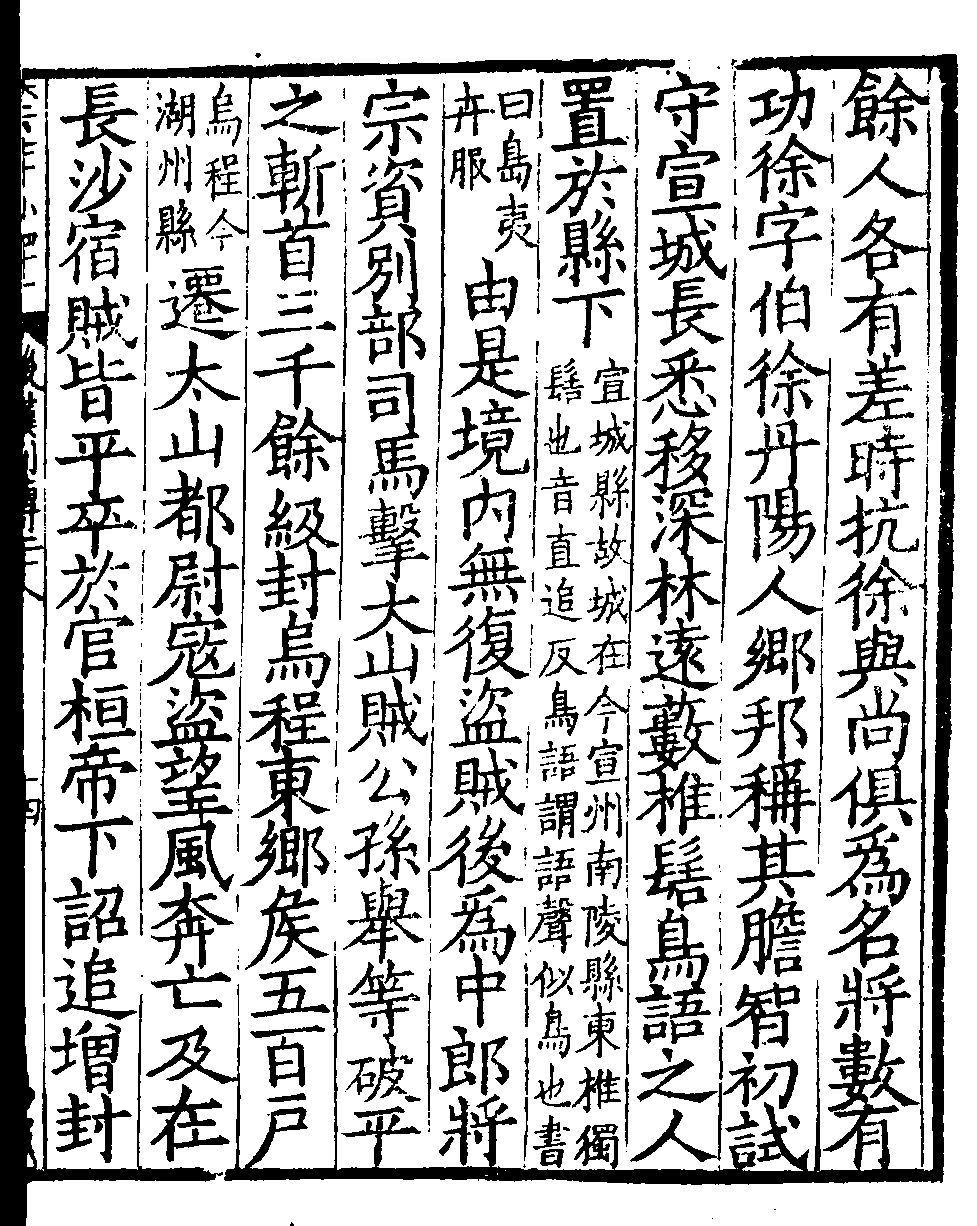 餘人各有差時抗徐與尚俱爲名將數有
功徐字伯徐丹陽人鄉邦稱其膽智初試
守宣城長悉移深林遠藪椎髻鳥語之人
置於縣下
宣城縣故城在今宣州南陵縣東椎獨
髻也音直追反鳥語謂語聲似鳥也書
曰島夷
卉服
由是境內無復盜賊後爲中郎將
宗資別部司馬擊太山賊公孫舉等破平
之斬首三千餘級封烏程東鄉侯五百戶
烏程今
湖州縣
遷太山都尉寇盜望風奔亡及在
長沙宿賊皆平卒於官桓帝下詔追增封